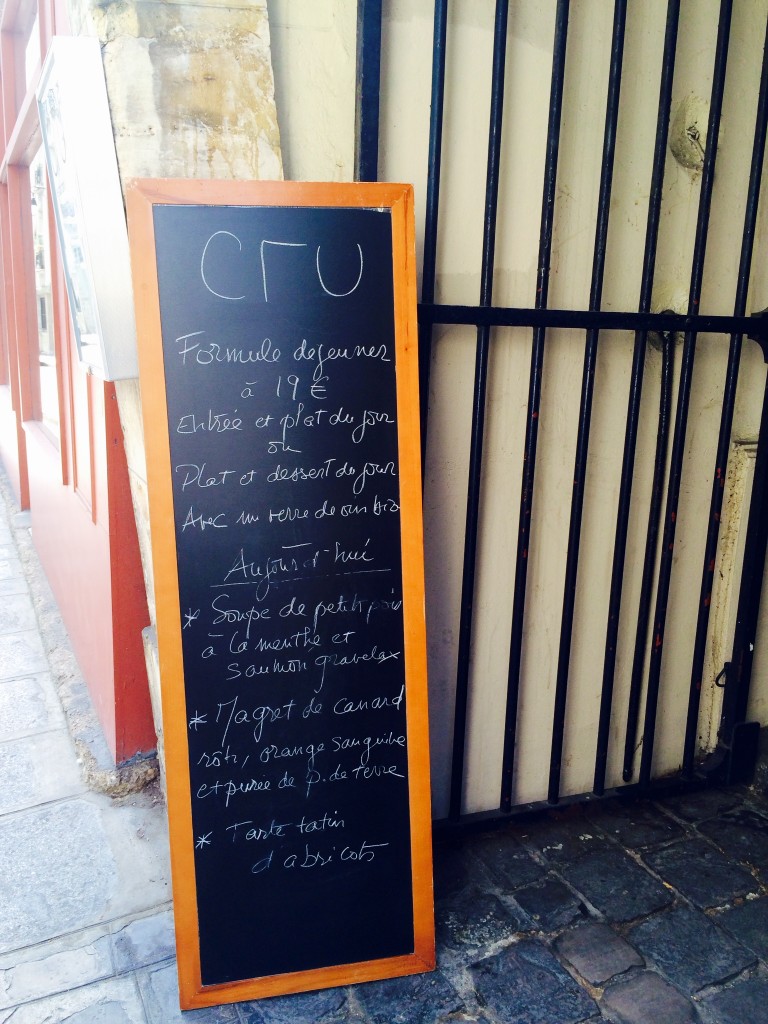 CRU
Formule dejeuner
à 19 €
Entrée et plat du jour
ou
Plat et dessert du jour
Avec un verre de vin bio
Aujourd'hui
* Soupe de petits pois
à la menthe et
saumon gravelax
* Magret de canard
rôti, orange sanguine
et purée de p. de terre
* Tarte tatin
d'abricots